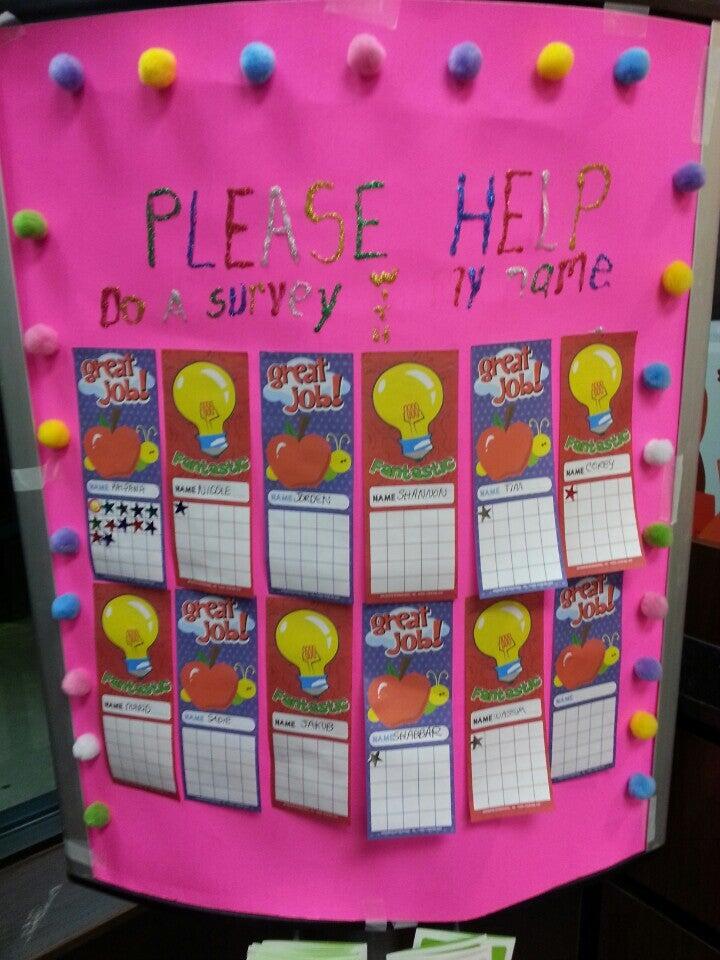 PLEASE HELP
Do A survey with my name
great job!
Fantastic
great job!
Fantastic
great job!
Fantastic
NAME
NAME NICOLE
NAME JORDEN
NAME SHANNON
NAME TIM
NAME COREY
Fantastic
great job!
Fantastic
great job!
Fantastic
great job!
NAME
NAME SADIE
NAME JAKUB
NAME SHABBAR
NAME
NAME